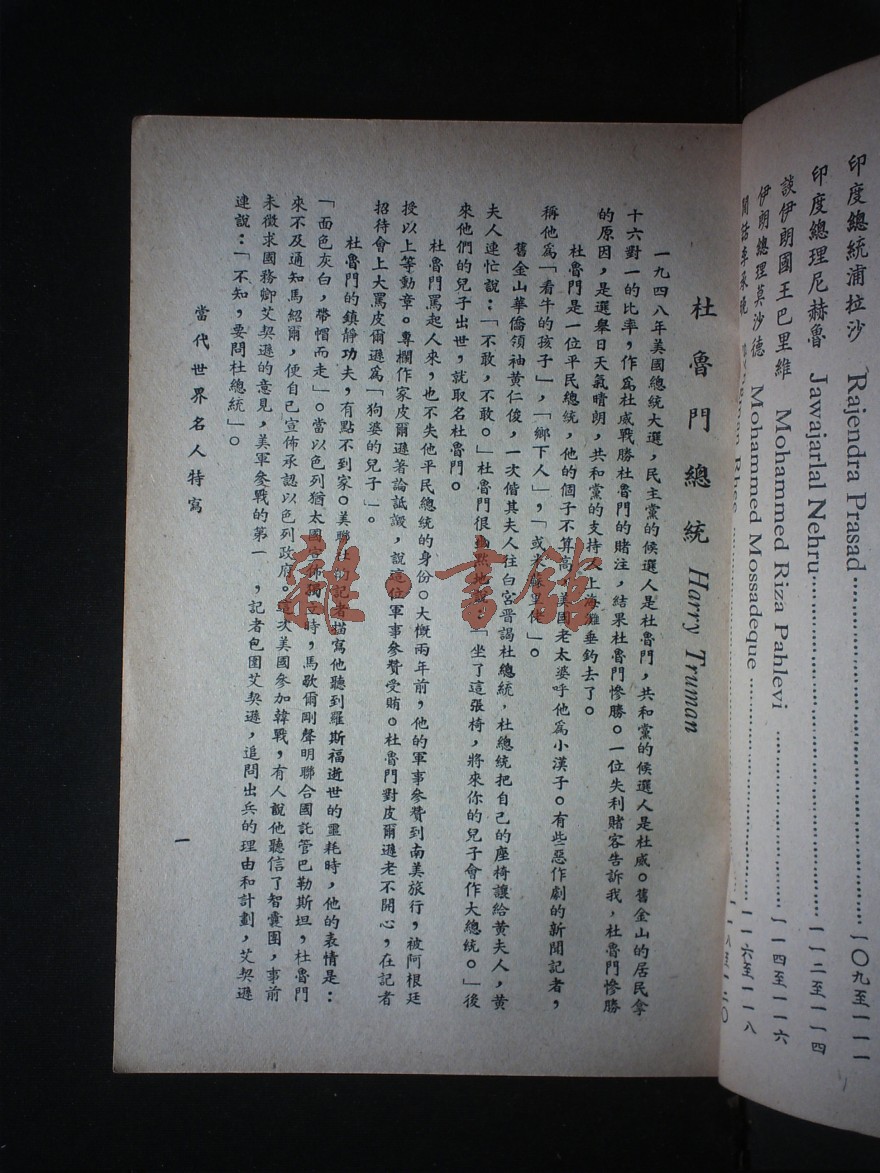 印度總統浦拉沙 Rajendra Prasad……一〇九至一一一
印度總理尼赫魯 Jawajarlal Nehru……一一二至一一四
談伊朗國王巴里維 Mohammed Riza Pahlevi……一一四至一一六
伊朗總理莫沙德 Mohammed Mossadeque……一一六至一一八
閒話李承晚 Rhee……一一八至一二〇
杜魯門總統 Harry Truman
一九四八年美國總統大選，民主黨的候選人是杜魯門，共和黨的候選人是杜威。舊金山的居民拿
十六對一的比率，作爲杜威戰勝杜魯門的賭注，結果杜魯門慘勝。一位失利賭客告訴我，杜魯門慘勝
的原因，是選舉日天氣晴朗，共和黨的支持人上海灘垂釣去了。
杜魯門是一位平民總統，他的個子不算高，美國老太婆呼他爲小漢子。有些惡作劇的新聞記者，
稱他爲「看牛的孩子」，「鄉下人」，「或米蘇里佬」。
舊金山華僑領袖黃仁俊，一次偕其夫人往白宮晋謁杜總統，杜總統把自己的座椅讓給黃夫人，黃
夫人連忙說：「不敢，不敢。」杜魯門很幽默地說：「坐了這張椅，將來你的兒子會作大總統。」後
來他們的兒子出世，就取名杜魯門。
杜魯門罵起人來，也不失他平民總統的身份。大慨兩年前，他的軍事參贊到南美旅行，被阿根廷
授以上等勳章。專欄作家皮爾遜著論詆譭，說這位軍事參贊受賄。杜魯門對皮爾遜老不開心，在記者
招待會上大罵皮爾遜爲「狗婆的兒子」。
杜魯門的鎮靜功夫，有點不到家。美聯社的記者描寫他聽到羅斯福逝世的噩耗時，他的表情是：
「面色灰白，帶帽而走」。當以色列猶太國宣佈獨立時，馬歇爾剛聲明聯合國託管巴勒斯坦，杜魯門
來不及通知馬紹爾，便自己宣佈承認以色列政府。這次美國參加韓戰，有人說他聽信了智囊團，事前
未徵求國務卿艾契遜的意見，美軍參戰的第一 ，記者包圍艾契遜，追問出兵的理由和計劃，艾契遜
連說：「不知，要問杜總統」。
當代世界名人特寫
一
雜·書館